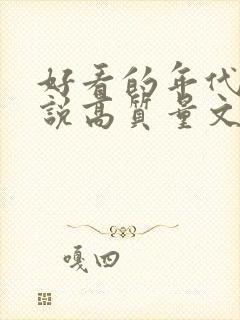 好看的年代
说高质量文
嘎四